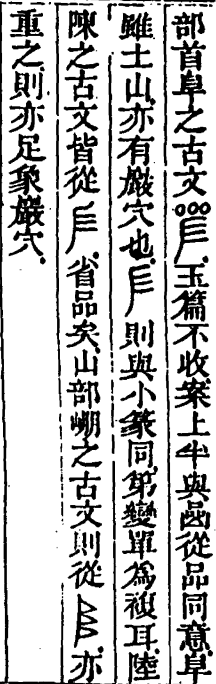 部首𨸏之古文玉篇不收案上半與嵒從品同意𨸏
雖土山亦有巖穴也則與小篆同第變單為複耳陸
陳之古文皆從省品矣山部之古文則從亦
重之則亦足象巖穴